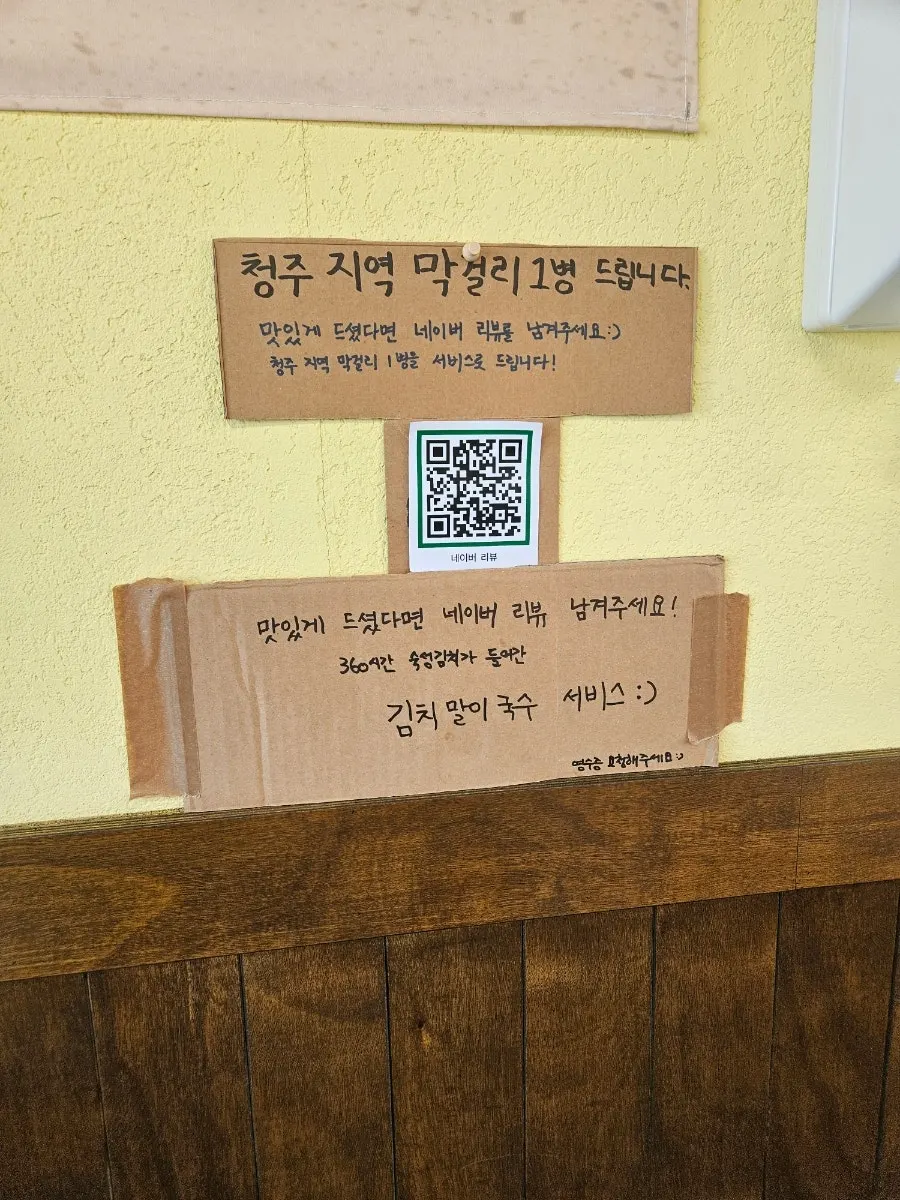 청주 지역 막걸리 1병 드립니다.
맛있게 드셨다면 네이버 리뷰를 남겨주세요:)
청주 지역 막걸리 1병을 서비스로 드립니다!
네이버 리뷰
맛있게 드셨다면 네이버 리뷰 남겨주세요!
360시간 숙성김치가 들어간
김치말이국수 서비스:)
영수증 요청해주세요:)